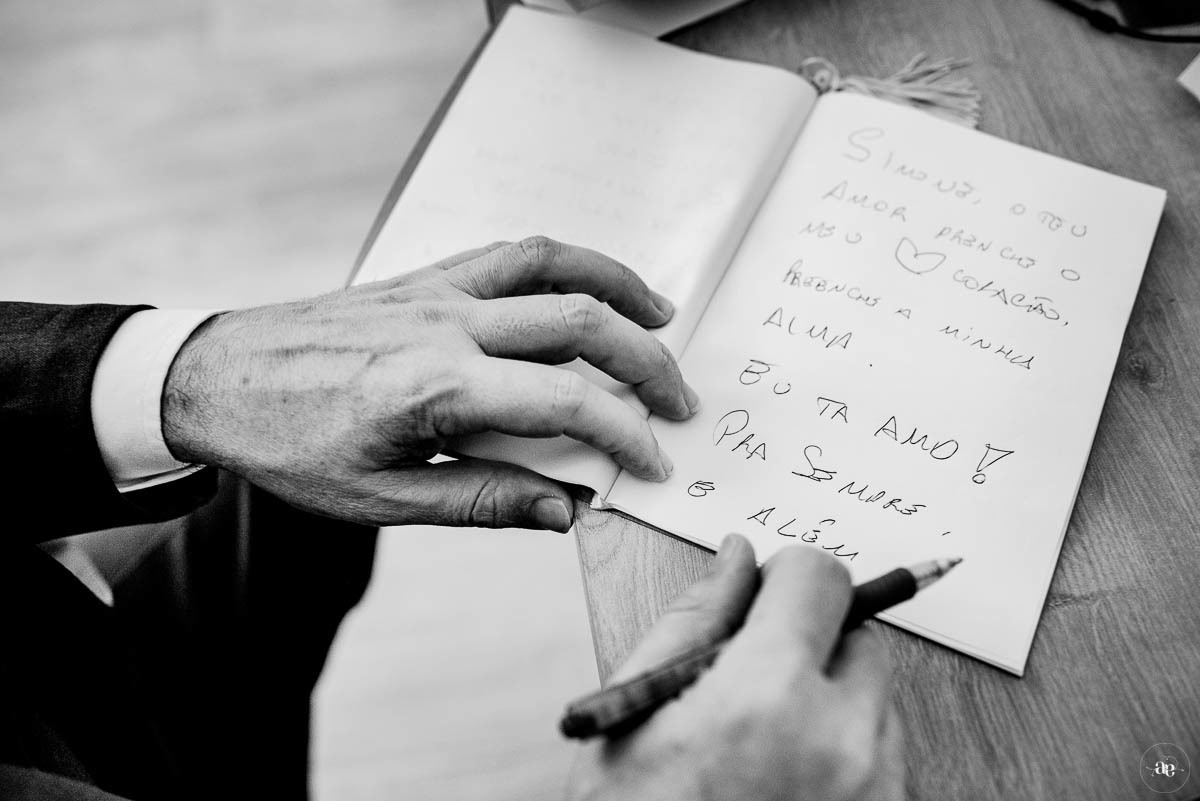 SIMONE, O TEU
AMOR PREENCHE O
MEU ♡ CORAÇÃO,
PREENCHE A MINHA
ALMA.
EU TA AMO!
PRA SEMPRE,
E ALÉM
ae